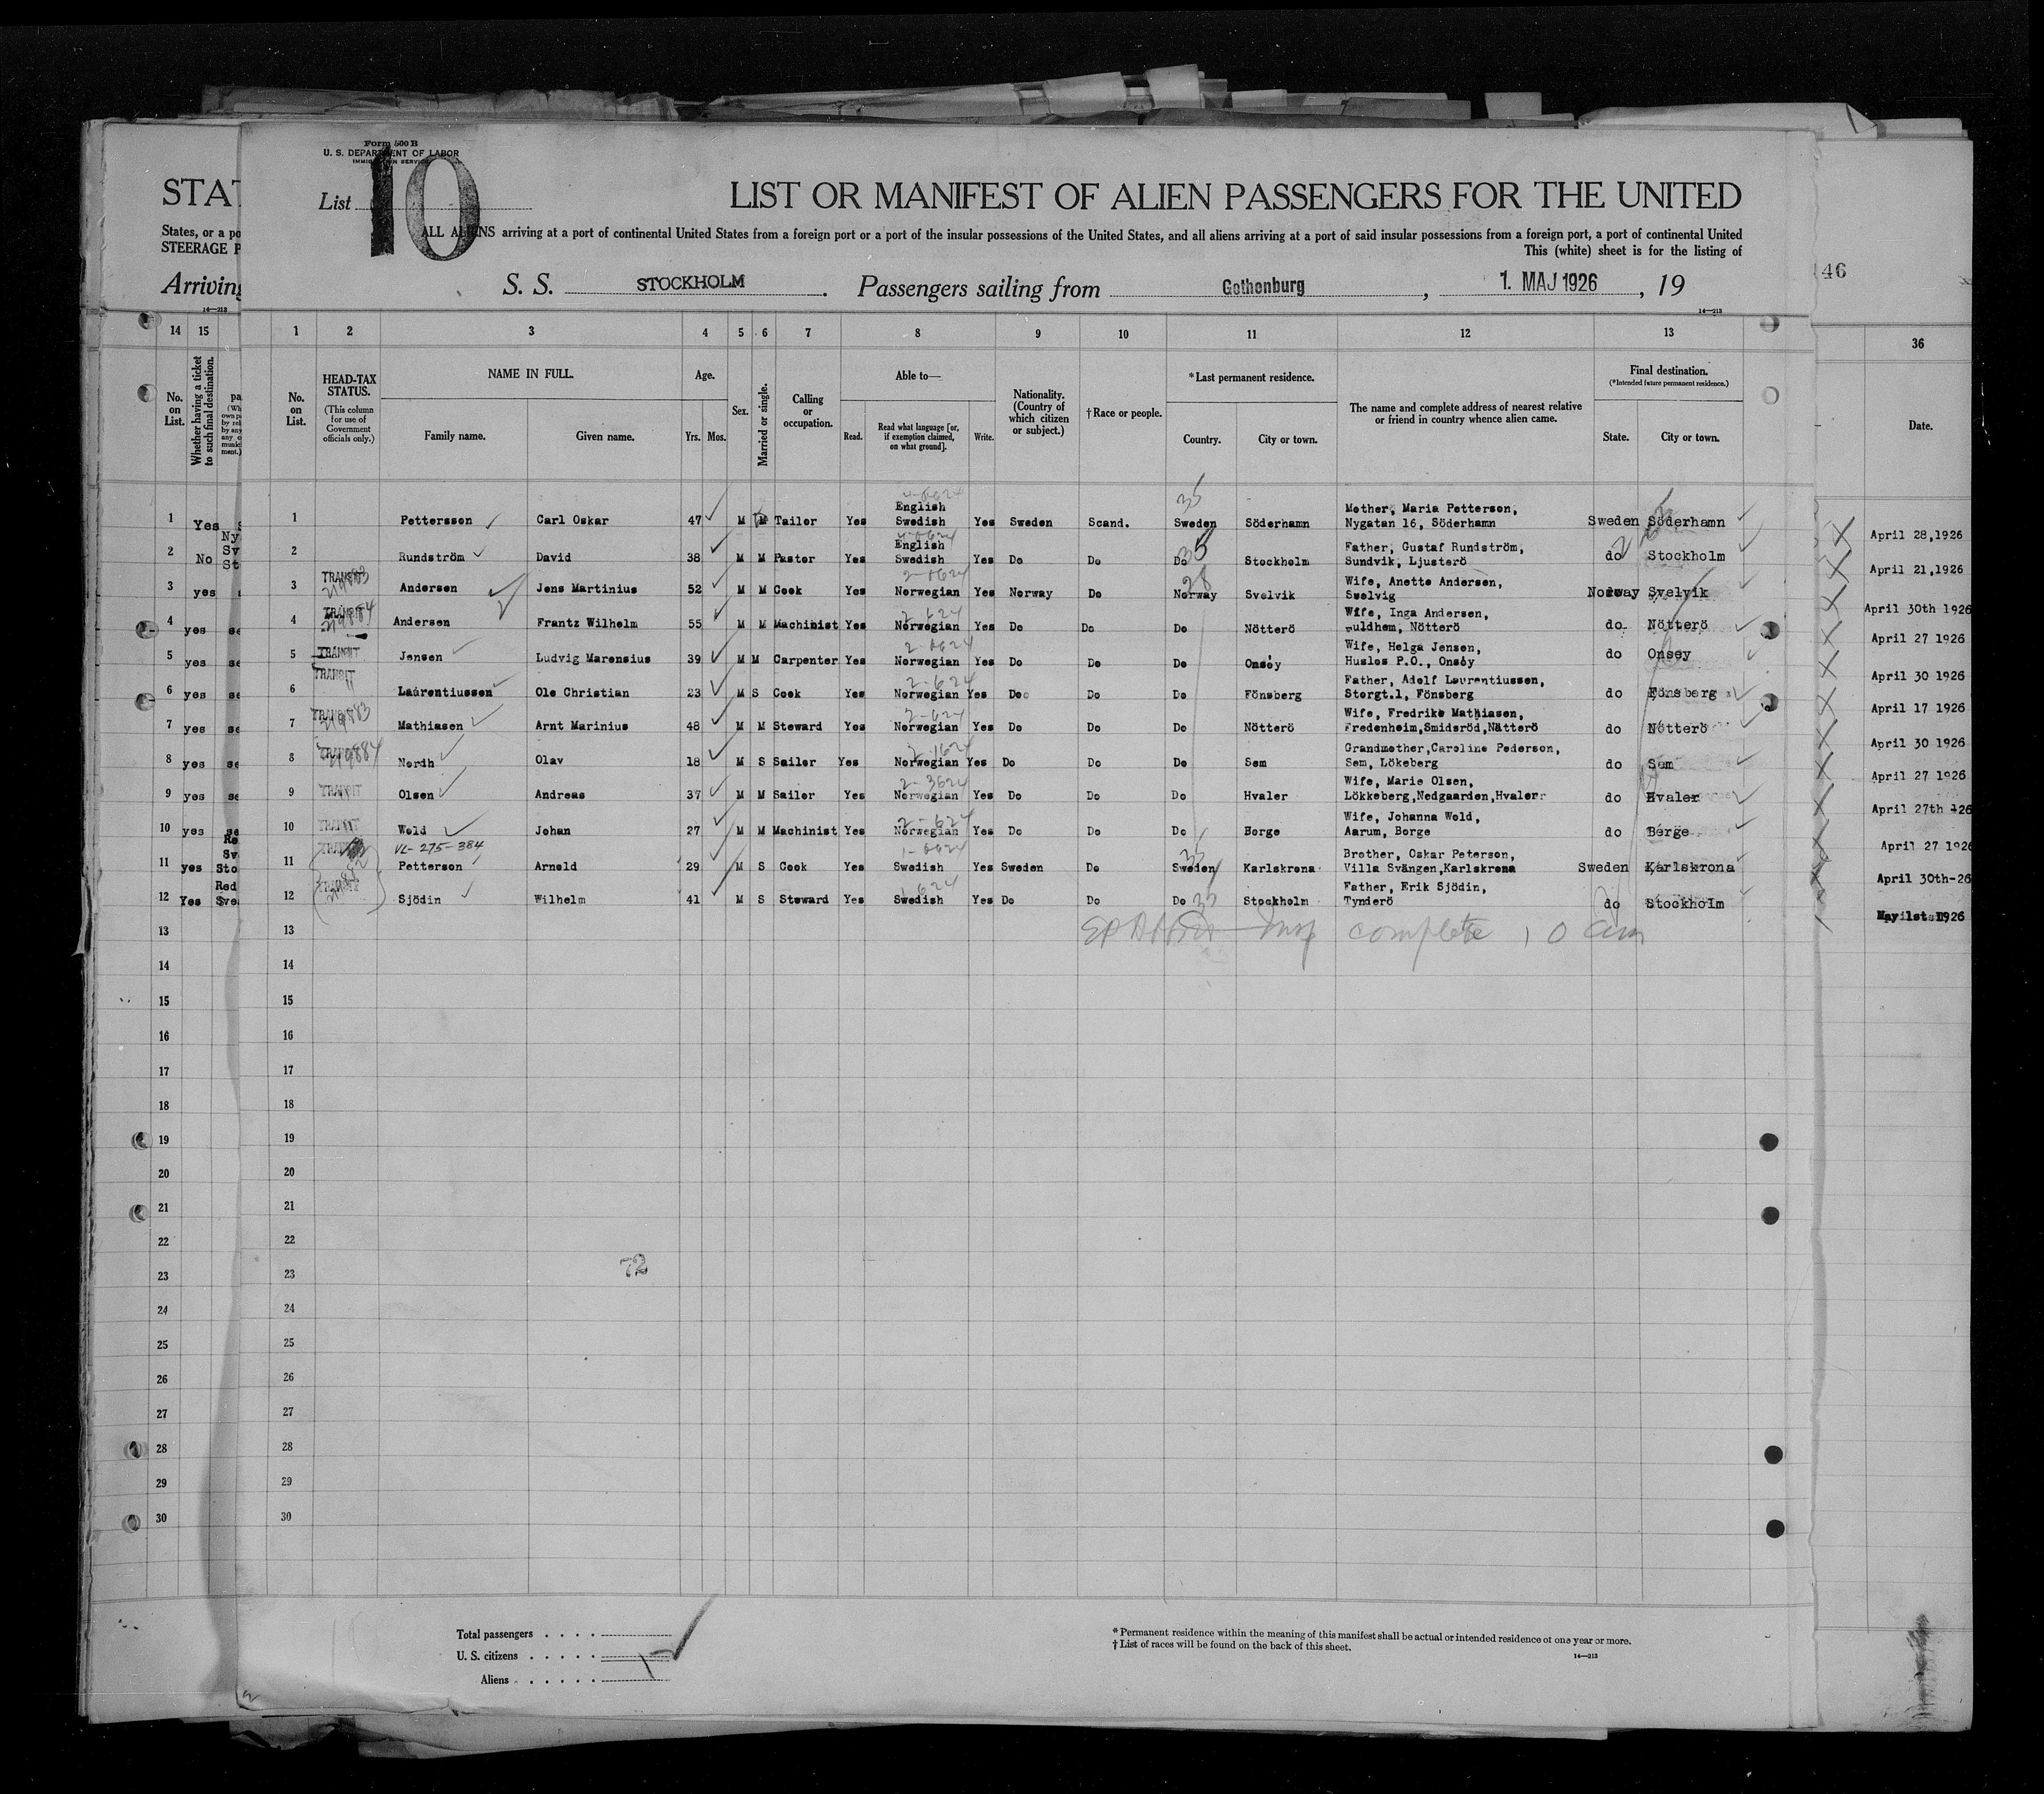 Form 500 B
U. S. DEPARTMENT OF LABOR
IMMIGRATION SERVICE
List 10
LIST OR MANIFEST OF ALIEN PASSENGERS FOR THE UNITED
ALL ALIENS arriving at a port of continental United States from a foreign port or a port of the insular possessions of the United States, and all aliens arriving at a port of said insular possessions from a foreign port, a port of continental United
This (white) sheet is for the listing of
S. S. STOCKHOLM. Passengers sailing from Gothenburg, 1. MAJ 1926, 19
14—213
STAT
States, or a po
STEERAGE P
Arriving
14—213
46
14 15
1 2 3 4 5 6 7 8 9 10 11 12 13
36
No. on List.
Whether having a ticket to such final destination.
No. on List.
HEAD-TAX STATUS.
(This column for use of Government officials only.)
NAME IN FULL.
Family name. Given name.
Age.
Yrs. Mos.
Sex.
Married or single.
Calling or occupation.
Able to—
Read. Read what language [or, if exemption claimed, on what ground]. Write.
Nationality. (Country of which citizen or subject.)
† Race or people.
* Last permanent residence.
Country. City or town.
The name and complete address of nearest relative or friend in country whence alien came.
Final destination.
(*Intended future permanent residence.)
State. City or town.
Date.
1 Yes 1 Pettersson Carl Oskar 47 M M Tailor Yes English Swedish Yes Sweden Scand. Sweden Söderhamn Mother, Maria Petterson, Nygatan 16, Söderhamn Sweden Söderhamn April 28,1926
2 No 2 Rundström David 38 M M Pastor Yes English Swedish Yes Do Do Do Stockholm Father, Gustaf Rundström, Sundvik, Ljusterö do Stockholm April 21,1926
3 yes 3 TRANSIT Andersen Jens Martinius 52 M M Cook Yes Norwegian Yes Norway Do Norway Svelvik Wife, Anette Andersen, Swelvig Norway Svelvik April 30th 1926
4 yes 4 TRANSIT Andersen Frantz Wilhelm 55 M M Machinist Yes Norwegian Yes Do Do Do Nötterö Wife, Inga Andersen, uldhem, Nötterö do Nötterö April 27 1926
5 yes 5 TRANSIT Jensen Ludvig Marensius 39 M M Carpenter Yes Norwegian Yes Do Do Do Onsöy Wife, Helga Jensen, Husløs P.O., Onsöy do Onsey April 30 1926
6 yes 6 TRANSIT Laurentiussen Ole Christian 23 M S Cook Yes Norwegian Yes Do Do Do Fönsberg Father, Adolf Laurentiussen, Storgt.1, Fönsberg do Fönsberg April 17 1926
7 yes 7 TRANSIT Mathiasen Arnt Marinius 48 M M Steward Yes Norwegian Yes Do Do Do Nötterö Wife, Fredrike Mathiasen, Fredenheim,Smidsröd,Nätterö do Nötterö April 30 1926
8 yes 8 Nordh Olav 18 M S Sailor Yes Norwegian Yes Do Do Do Sem Grandmother,Caroline Pederson, Sem, Lökeberg do Sem April 27 1926
9 yes 9 TRANSIT Olsen Andreas 37 M M Sailor Yes Norwegian Yes Do Do Do Hvaler Wife, Marie Olsen, Lökkeberg,Nedgaarden,Hvaler do Hvaler April 27th 26
10 yes 10 TRANSIT Wold Johan 27 M M Machinist Yes Norwegian Yes Do Do Do Borge Wife, Johanna Wold, Aarum, Borge do Borge April 27 1926
VL-275-384
11 yes Sto 11 Petterson Arnold 29 M S Cook Yes Swedish Yes Sweden Do Sweden Karlskrona Brother, Oskar Peterson, Villa Svängen,Karlskrona Sweden Karlskrona April 30th-26
12 Yes Sve 12 TRANSIT Sjödin Wilhelm 41 M S Steward Yes Swedish Yes Do Do Do Stockholm Father, Erik Sjödin, Tynderö do Stockholm May 1st 1926
13 13 Insp complete 10 am
14 14
15 15
16 16
17 17
18 18
19 19
20 20
21 21
22 22
23 23 72
24 24
25 25
26 26
27 27
28 28
29 29
30 30
Total passengers
U. S. citizens
Aliens
* Permanent residence within the meaning of this manifest shall be actual or intended residence of one year or more.
† List of races will be found on the back of this sheet.
14—213